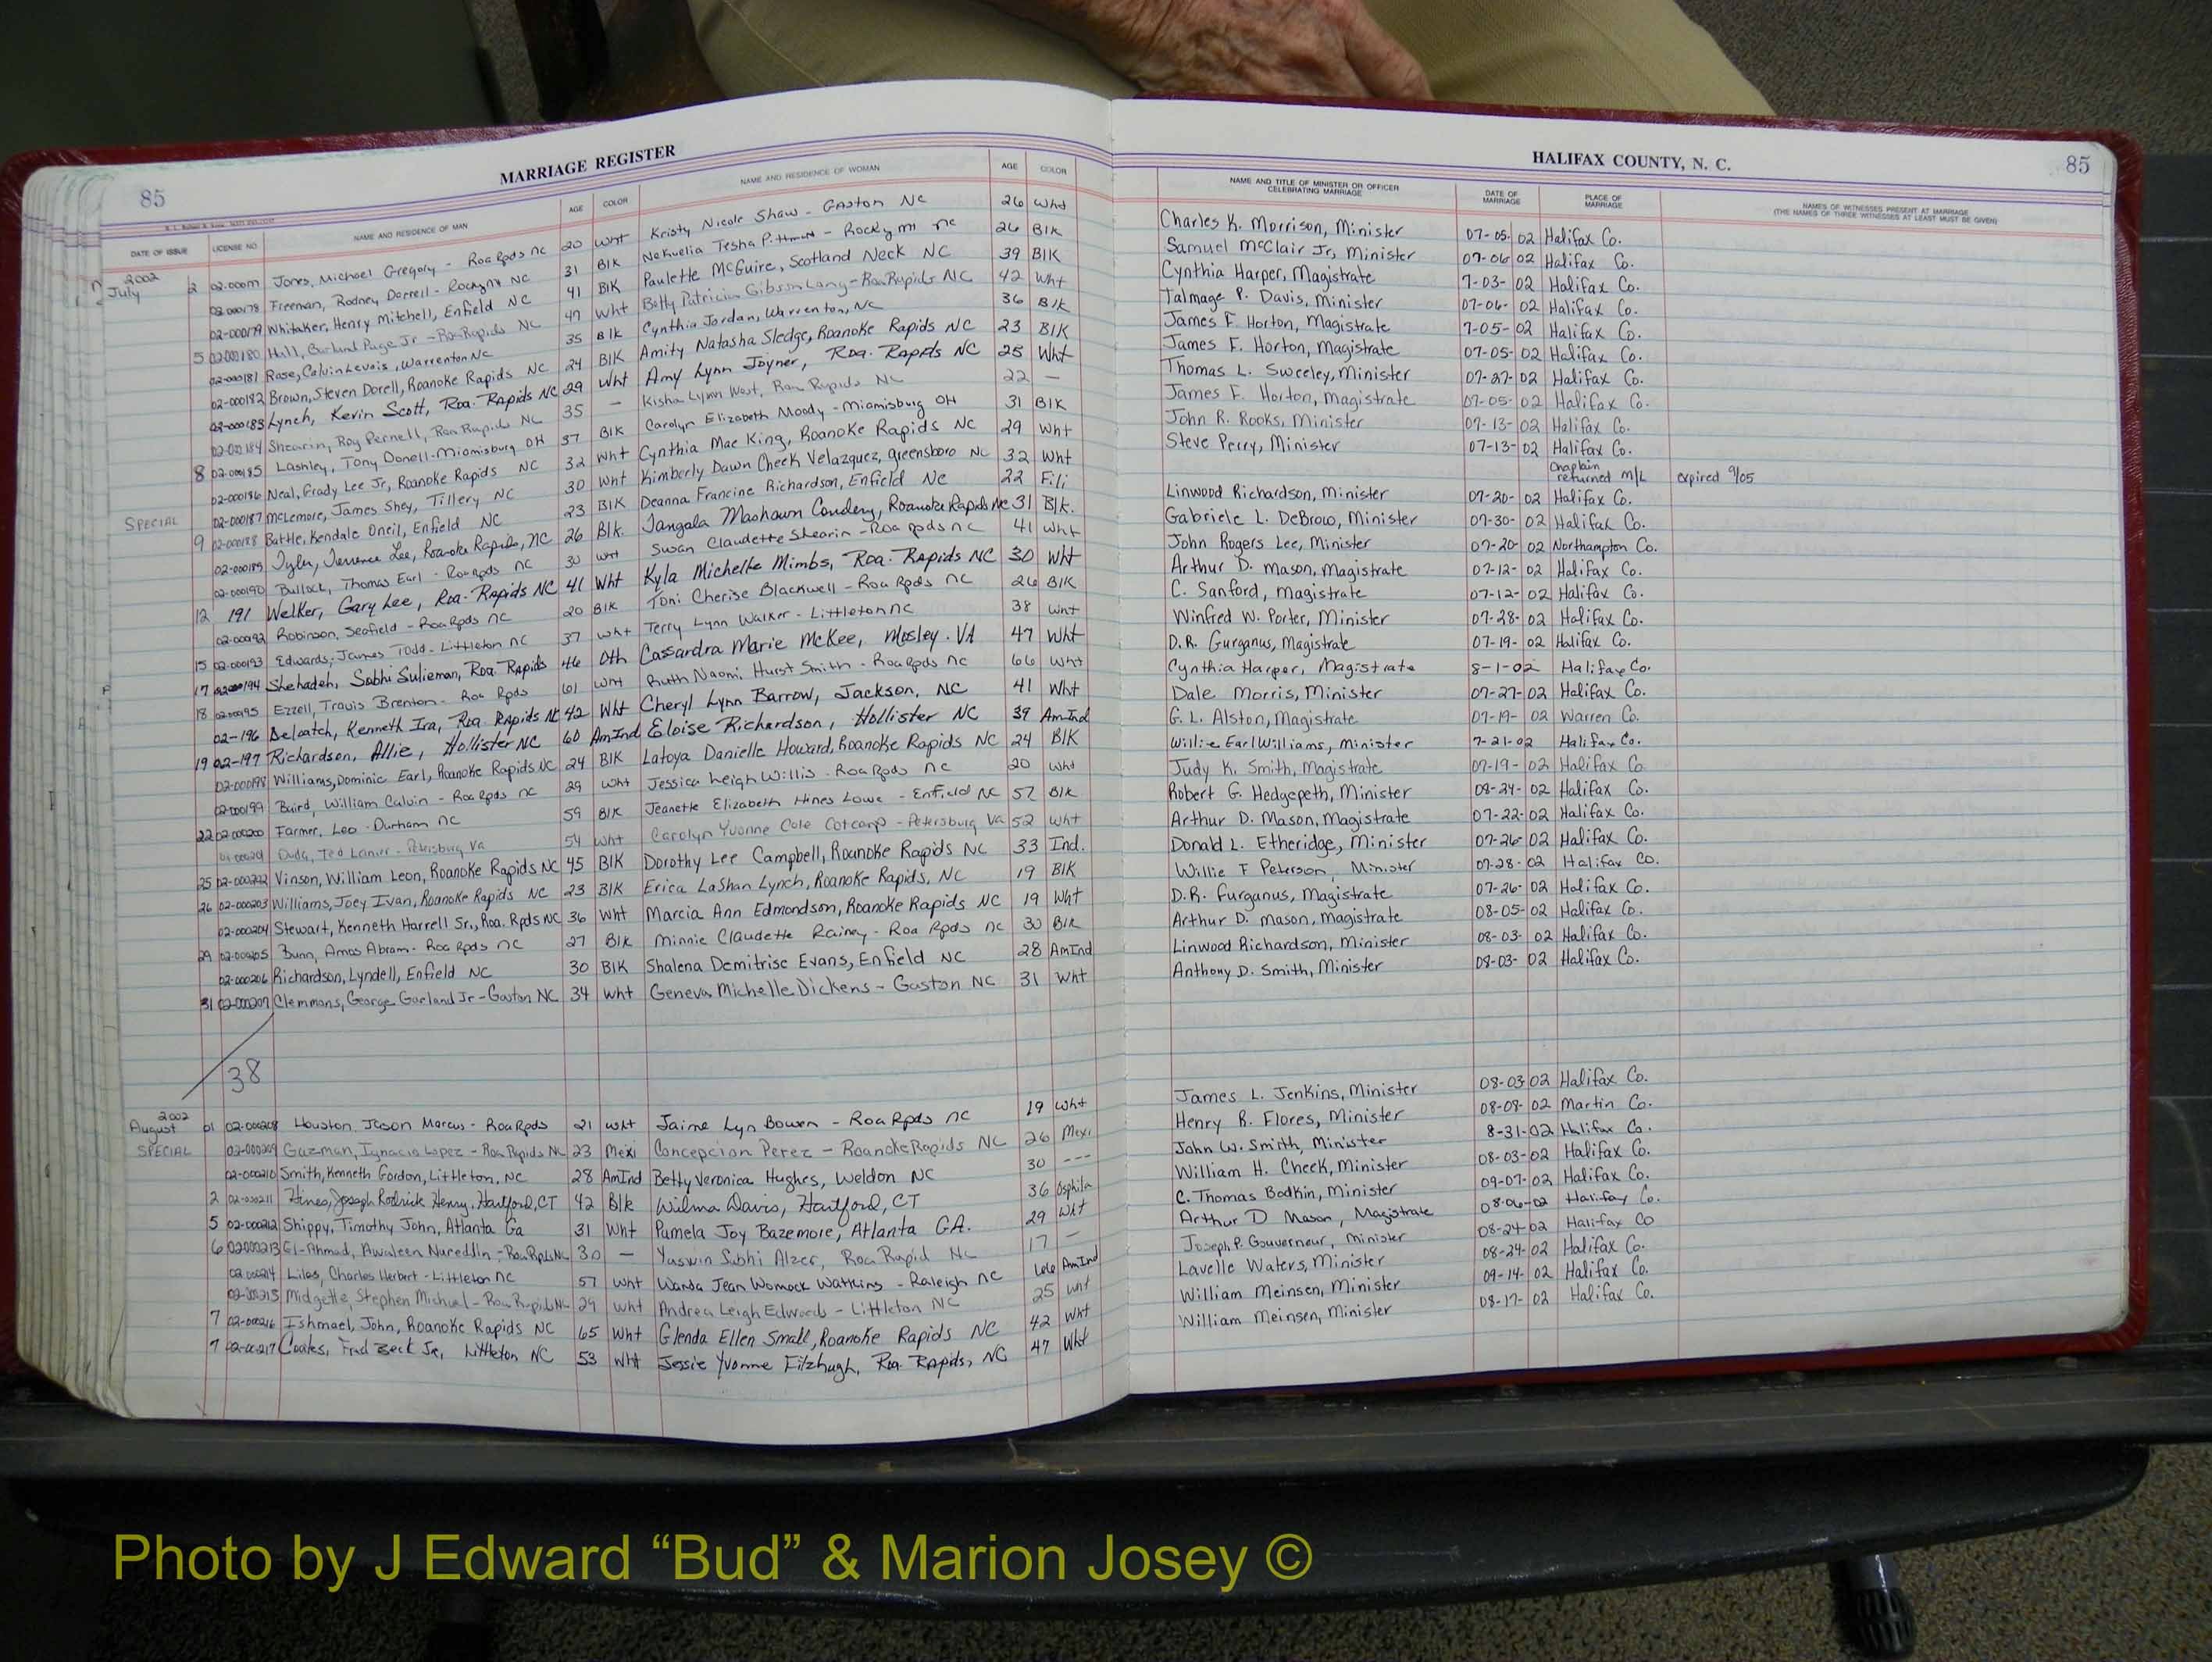 MARRIAGE REGISTER
85
DATE OF ISSUE LICENSE NO. NAME AND RESIDENCE OF MAN AGE COLOR NAME AND RESIDENCE OF WOMAN AGE COLOR
2002
July 2 02-000177 Jones, Michael Gregory - Roa Rpds NC 20 Wht Kristy Nicole Shaw - Gaston NC 26 Wht
02-000178 Freeman, Rodney Darrell - Rocky Mt NC 31 Blk Nekuelia Tesha Pittman - Rocky Mt NC 26 Blk
02-000179 Whitaker, Henry Mitchell, Enfield NC 41 Blk Paulette McGuire, Scotland Neck NC 39 Blk
5 02-000180 Hall, Garland Page Jr - Roa Rapids NC 47 Wht Betty Patricia Gibson Lang - Roa Rapids NC 42 Wht
02-000181 Rose, Calvin Levois, Warrenton NC 35 Blk Cynthia Jordan, Warrenton, NC 36 Blk
02-000182 Brown, Steven Dorell, Roanoke Rapids NC 24 Blk Amity Natasha Sledge, Roanoke Rapids NC 23 Blk
02-000183 Lynch, Kevin Scott, Roa. Rapids NC 29 Wht Amy Lynn Joyner, Roa. Rapids NC 25 Wht
02-000184 Shearin, Roy Pernell, Roa Rapids NC 35 — Kisha Lynn West, Roa Rapids NC 22 —
8 02-000185 Lashley, Tony Donell - Miamisburg OH 37 Blk Carolyn Elizabeth Moody - Miamisburg OH 31 Blk
02-000186 Neal, Grady Lee Jr, Roanoke Rapids NC 32 Wht Cynthia Mae King, Roanoke Rapids NC 29 Wht
SPECIAL 02-000187 McLemore, James Shey, Tillery NC 30 Wht Kimberly Dawn Cheek Velazquez, Greensboro NC 32 Wht
9 02-000188 Battle, Kendale Oneil, Enfield NC 23 Blk Deanna Francine Richardson, Enfield NC 22 Fili
02-000189 Tyler, Terrence Lee, Roanoke Rapids, NC 26 Blk. Tangala Mashawn Coudeny, Roanoke Rapids NC 31 Blk.
02-000190 Bullock, Thomas Earl - Roa Rpds NC 30 Wht Swan Claudette Shearin - Roa Rpds NC 41 Wht
12 191 Welker, Gary Lee, Roa. Rapids NC 41 Wht Kyla Michelle Mimbs, Roa. Rapids NC 30 Wht
02-000192 Robinson, Seafield - Roa Rpds NC 20 Blk Toni Cherise Blackwell - Roa Rpds NC 26 Blk
15 02-000193 Edwards, James Todd - Littleton NC 37 Wht Terry Lynn Walker - Littleton NC 38 Wht
17 02-000194 Shehadeh, Sabhi Sulieman, Roa. Rapids 46 Oth Cassandra Marie McKee, Mosley. VA 47 Wht
18 02-000195 Ezzell, Travis Brenton - Roa Rpds 61 Wht Ruth Naomi Hurst Smith - Roa Rpds NC 66 Wht
02-196 Deloatch, Kenneth Ira, Roa. Rapids NC 42 Wht Cheryl Lynn Barrow, Jackson, NC 41 Wht
19 02-197 Richardson, Allie, Hollister NC 60 AmInd Eloise Richardson, Hollister NC 39 AmInd
02-000198 Williams, Dominic Earl, Roanoke Rapids NC 24 Blk Latoya Danielle Howard, Roanoke Rapids NC 24 Blk
02-000199 Baird, William Calvin - Roa Rpds NC 29 Wht Jessica Leigh Willis - Roa Rpds NC 20 Wht
22 02-000200 Farmer, Leo - Durham NC 59 Blk Jeanette Elizabeth Hines Lowe - Enfield NC 57 Blk
Duda, Ted Lanier - Petersburg Va 54 Wht Carolyn Yvonne Cole - Petersburg Va 52 Wht
25 02-000202 Vinson, William Leon, Roanoke Rapids NC 45 Blk Dorothy Lee Campbell, Roanoke Rapids NC 33 Ind.
26 02-000203 Williams, Joey Ivan, Roanoke Rapids NC 23 Blk Erica LaShan Lynch, Roanoke Rapids, NC 19 Blk
02-000204 Stewart, Kenneth Harrell Sr., Roa. Rpds NC 36 Wht Marcia Ann Edmondson, Roanoke Rapids NC 19 Wht
29 02-000205 Bunn, Amos Abram - Roa Rpds NC 27 Blk Minnie Claudette Rainey - Roa Rpds NC 30 Blk
02-000206 Richardson, Lyndell, Enfield NC 30 Blk Shalena Demitrise Evans, Enfield NC 28 AmInd
31 02-000207 Clemmons, George Garland Jr - Gaston NC 34 Wht Geneva Michelle Dickens - Gaston NC 31 Wht
38
2002
August 01 02-000208 Houston, Jason Marcus - Roa Rpds 21 Wht Jaime Lyn Bowen - Roa Rpds NC 19 Wht
SPECIAL 02-000209 Guzman, Ignacio Lopez - Roa Rapids NC 23 Mexi Concepcion Perez - Roanoke Rapids NC 26 Mexi
02-000210 Smith, Kenneth Gordon, Littleton, NC 28 AmInd Betty Veronica Hughes, Weldon NC 30 ---
2 02-000211 Hines, Joseph Rodrick Henry, Hartford, CT 42 Blk Wilma Davis, Hartford, CT 36
5 02-000212 Shippy, Timothy John, Atlanta Ga 31 Wht Pamela Joy Bazemore, Atlanta GA. 29 Wht
6 02-000213 El-Ahmad, Awaleen Nureddin - Roa Rpds NC 30 — Yaswin Subhi Alzer, Roa Rapid NC 17 —
02-000214 Liles, Charles Herbert - Littleton NC 57 Wht Wanda Jean Womack Watkins - Raleigh NC AmInd
02-000215 Midgette, Stephen Michael - Roa Rapids NC 29 Wht Andrea Leigh Edwards - Littleton NC 25 Wht
7 02-000216 Ishmael, John, Roanoke Rapids NC 65 Wht Glenda Ellen Small, Roanoke Rapids NC 42 Wht
7 02-00217 Coates, Fred Beck Jr, Littleton NC 53 Wht Jessie Yvonne Fitzhugh, Roa. Rapids, NC 47 Wht
HALIFAX COUNTY, N. C.
85
NAME AND TITLE OF MINISTER OR OFFICER CELEBRATING MARRIAGE DATE OF MARRIAGE PLACE OF MARRIAGE NAMES OF WITNESSES PRESENT AT MARRIAGE
(THE NAMES OF THREE WITNESSES AT LEAST MUST BE GIVEN)
Charles K. Morrison, Minister 07-05-02 Halifax Co.
Samuel McClair Jr, Minister 07-06-02 Halifax Co.
Cynthia Harper, Magistrate 7-03-02 Halifax Co.
Talmage P. Davis, Minister 07-06-02 Halifax Co.
James F. Horton, Magistrate 7-05-02 Halifax Co.
James F. Horton, Magistrate 07-05-02 Halifax Co.
Thomas L. Sweeley, Minister 07-27-02 Halifax Co.
James F. Horton, Magistrate 07-05-02 Halifax Co.
John R. Rooks, Minister 07-13-02 Halifax Co.
Steve Perry, Minister 07-13-02 Halifax Co.
Chaplain returned M/L expired 9/05
Linwood Richardson, Minister 07-20-02 Halifax Co.
Gabriele L. DeBrow, Minister 07-30-02 Halifax Co.
John Rogers Lee, Minister 07-20-02 Northampton Co.
Arthur D. Mason, Magistrate 07-12-02 Halifax Co.
C. Sanford, Magistrate 07-12-02 Halifax Co.
Winfred W. Porter, Minister 07-28-02 Halifax Co.
D.R. Gurganus, Magistrate 07-19-02 Halifax Co.
Cynthia Harper, Magistrate 8-1-02 Halifax Co.
Dale Morris, Minister 07-27-02 Halifax Co.
G. L. Alston, Magistrate 07-19-02 Warren Co.
Willie Earl Williams, Minister 7-21-02 Halifax Co.
Judy K. Smith, Magistrate 07-19-02 Halifax Co
Robert G. Hedgepeth, Minister 08-24-02 Halifax Co.
Arthur D. Mason, Magistrate 07-22-02 Halifax Co.
Donald L. Etheridge, Minister 07-26-02 Halifax Co.
Willie F Peterson, Minister 07-28-02 Halifax Co.
D.R. Furganus, Magistrate 07-26-02 Halifax Co.
Arthur D. Mason, Magistrate 08-05-02 Halifax Co.
Linwood Richardson, Minister 08-03-02 Halifax Co.
Anthony D. Smith, Minister 08-03-02 Halifax Co.
James L. Jenkins, Minister 08-03-02 Halifax Co.
Henry B. Flores, Minister 08-08-02 Martin Co.
John W. Smith, Minister 8-31-02 Halifax Co.
William H. Cheek, Minister 08-03-02 Halifax Co.
C. Thomas Bodkin, Minister 09-07-02 Halifax Co.
Arthur D Mason, Magistrate 08-06-02 Halifax Co.
Joseph P. Gouverneur, Minister 08-24-02 Halifax Co
Lavelle Waters, Minister 08-24-02 Halifax Co.
William Meinsen, Minister 09-14-02 Halifax Co.
William Meinsen, Minister 08-17-02 Halifax Co.
Photo by J Edward “Bud” & Marion Josey ©